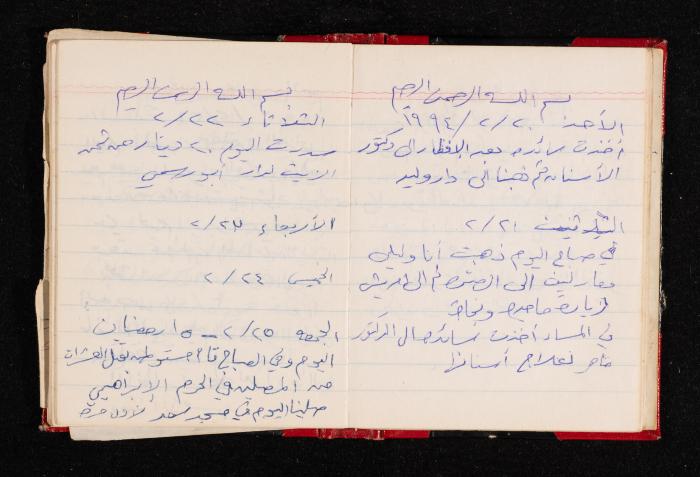 بسم الله الرحمن الرحيم
الأحد ١٩٩٤/٢/٢٠
أخذت سائده بعد الإفطار الى دكتور
الأسنان ثم ذهبنا الى دار وليد
الاثنين ٢/٢١
في صباح اليوم ذهبت أنا وليلى
الى ثم الى
لزيارة ماجده ونجاح
في المساء أخذت سائده الى الدكتور
ماهر لعلاج أسنانها
بسم الله الرحمن الرحيم
الثلاثاء ٢/٢٢
سددت اليوم ٢٠ دينار من ثمن
الزيت لدار أبو رسمي
الأربعاء ٢/٢٣
الخميس ٢/٢٤
الجمعه ٢/٢٥ - ١٥ رمضان
اليوم وفي الصباح قام مستوطن بقتل العشرات
من المصلين في الحرم الإبراهيمي
صلينا اليوم في مسجد سعد لأول مرة